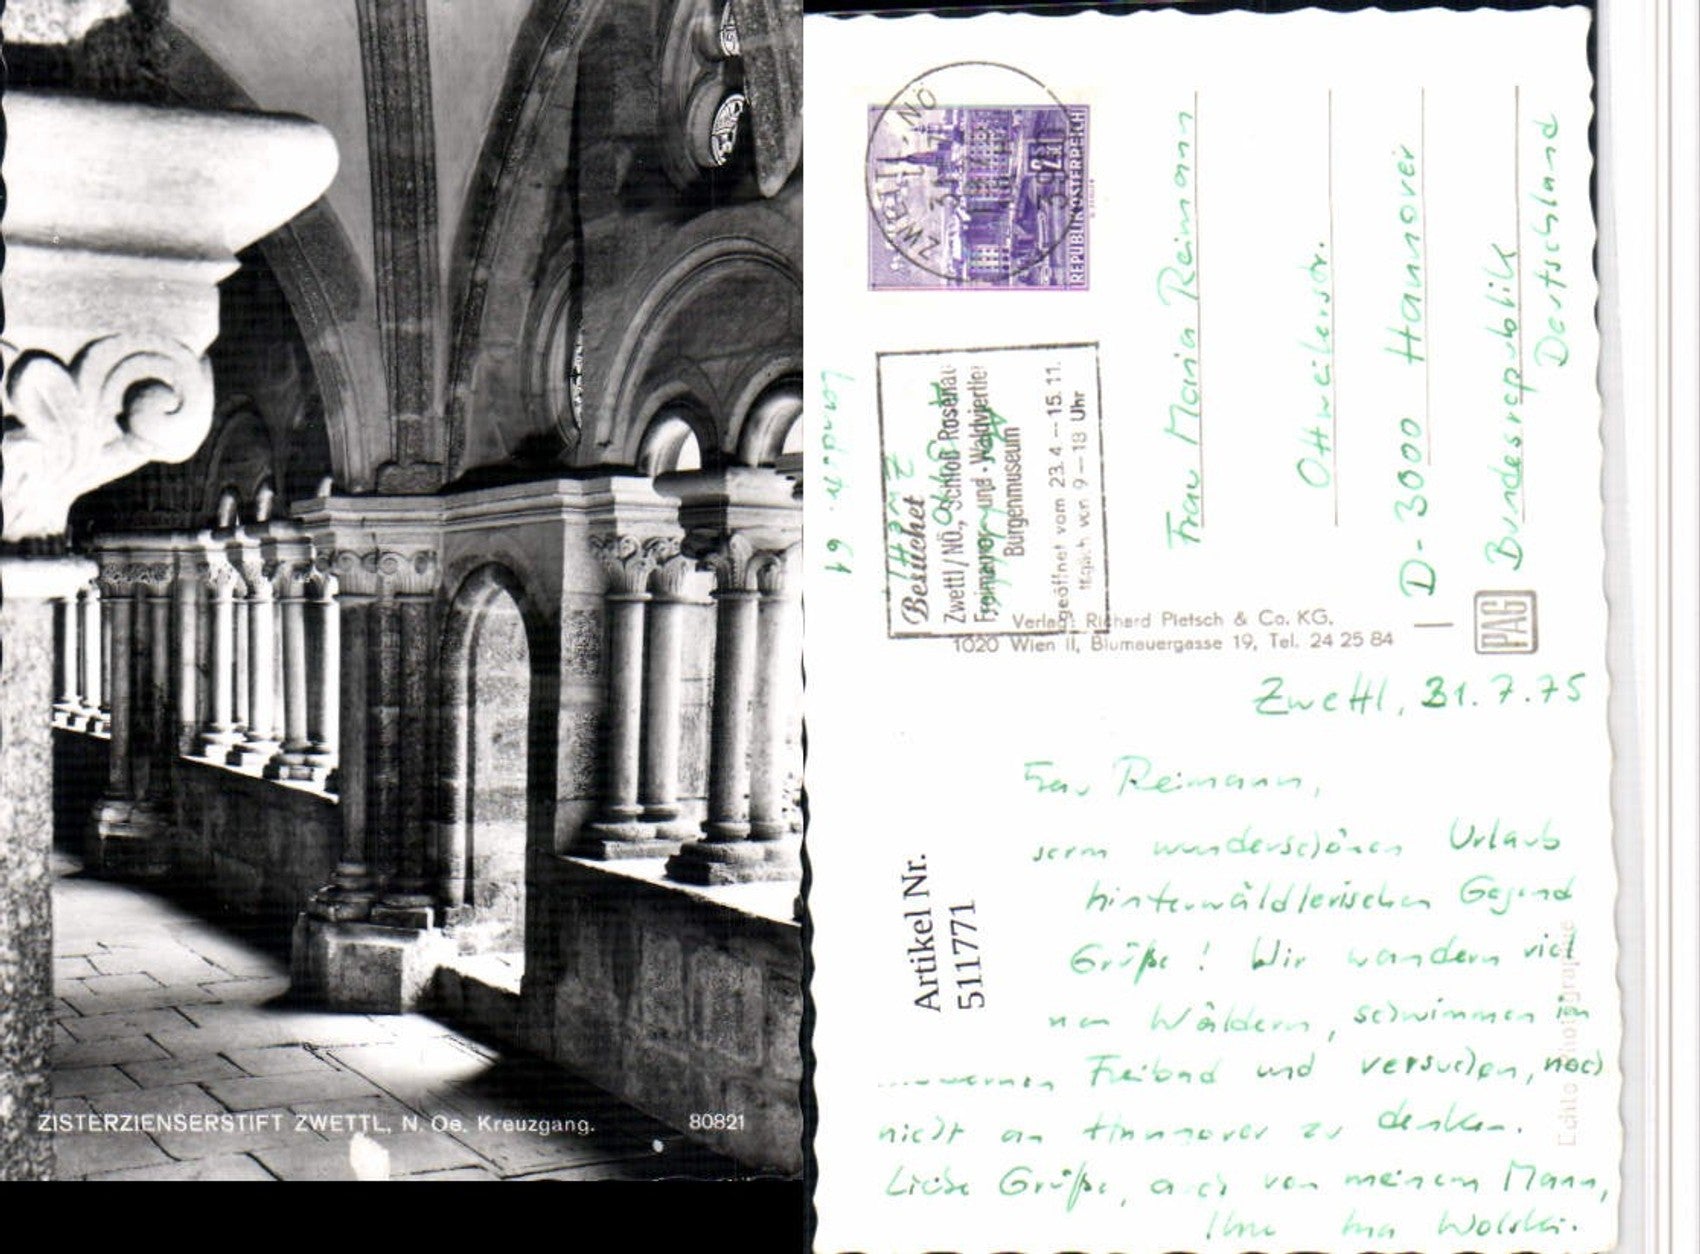 ZISTERZIENSERSTIFT ZWETTL, N. Oe. Kreuzgang.
80821
ZWETTL · NÖ
REPUBLIK ÖSTERREICH
Besuchet
Zwettl/NÖ., Schloß Rosenau
Freimaurer- und Waldviertler
Burgenmuseum
geöffnet vom 23.4.–15.11.
täglich von 9–18 Uhr
Landstr. 61
Zwettl
Frau Maria Reimann
Ottweilerstr.
D-3000 Hannover 1
Bundesrepublik
Deutschland
Verlag: Richard Pietsch & Co. KG,
1020 Wien II, Blumauergasse 19, Tel. 24 25 84
PAG
Echte Photographie
Artikel Nr.
511771
Zwettl, 31.7.75
Frau Reimann,
wunderschönen Urlaub
hinterwäldlerischen Gegend
Grüße! Wir wandern viel
Wäldern, schwimmen im
Freibad und versuchen, noch
nicht an Hannover zu denken.
Liebe Grüße, auch von meinem Mann,
Ihre Wolski.